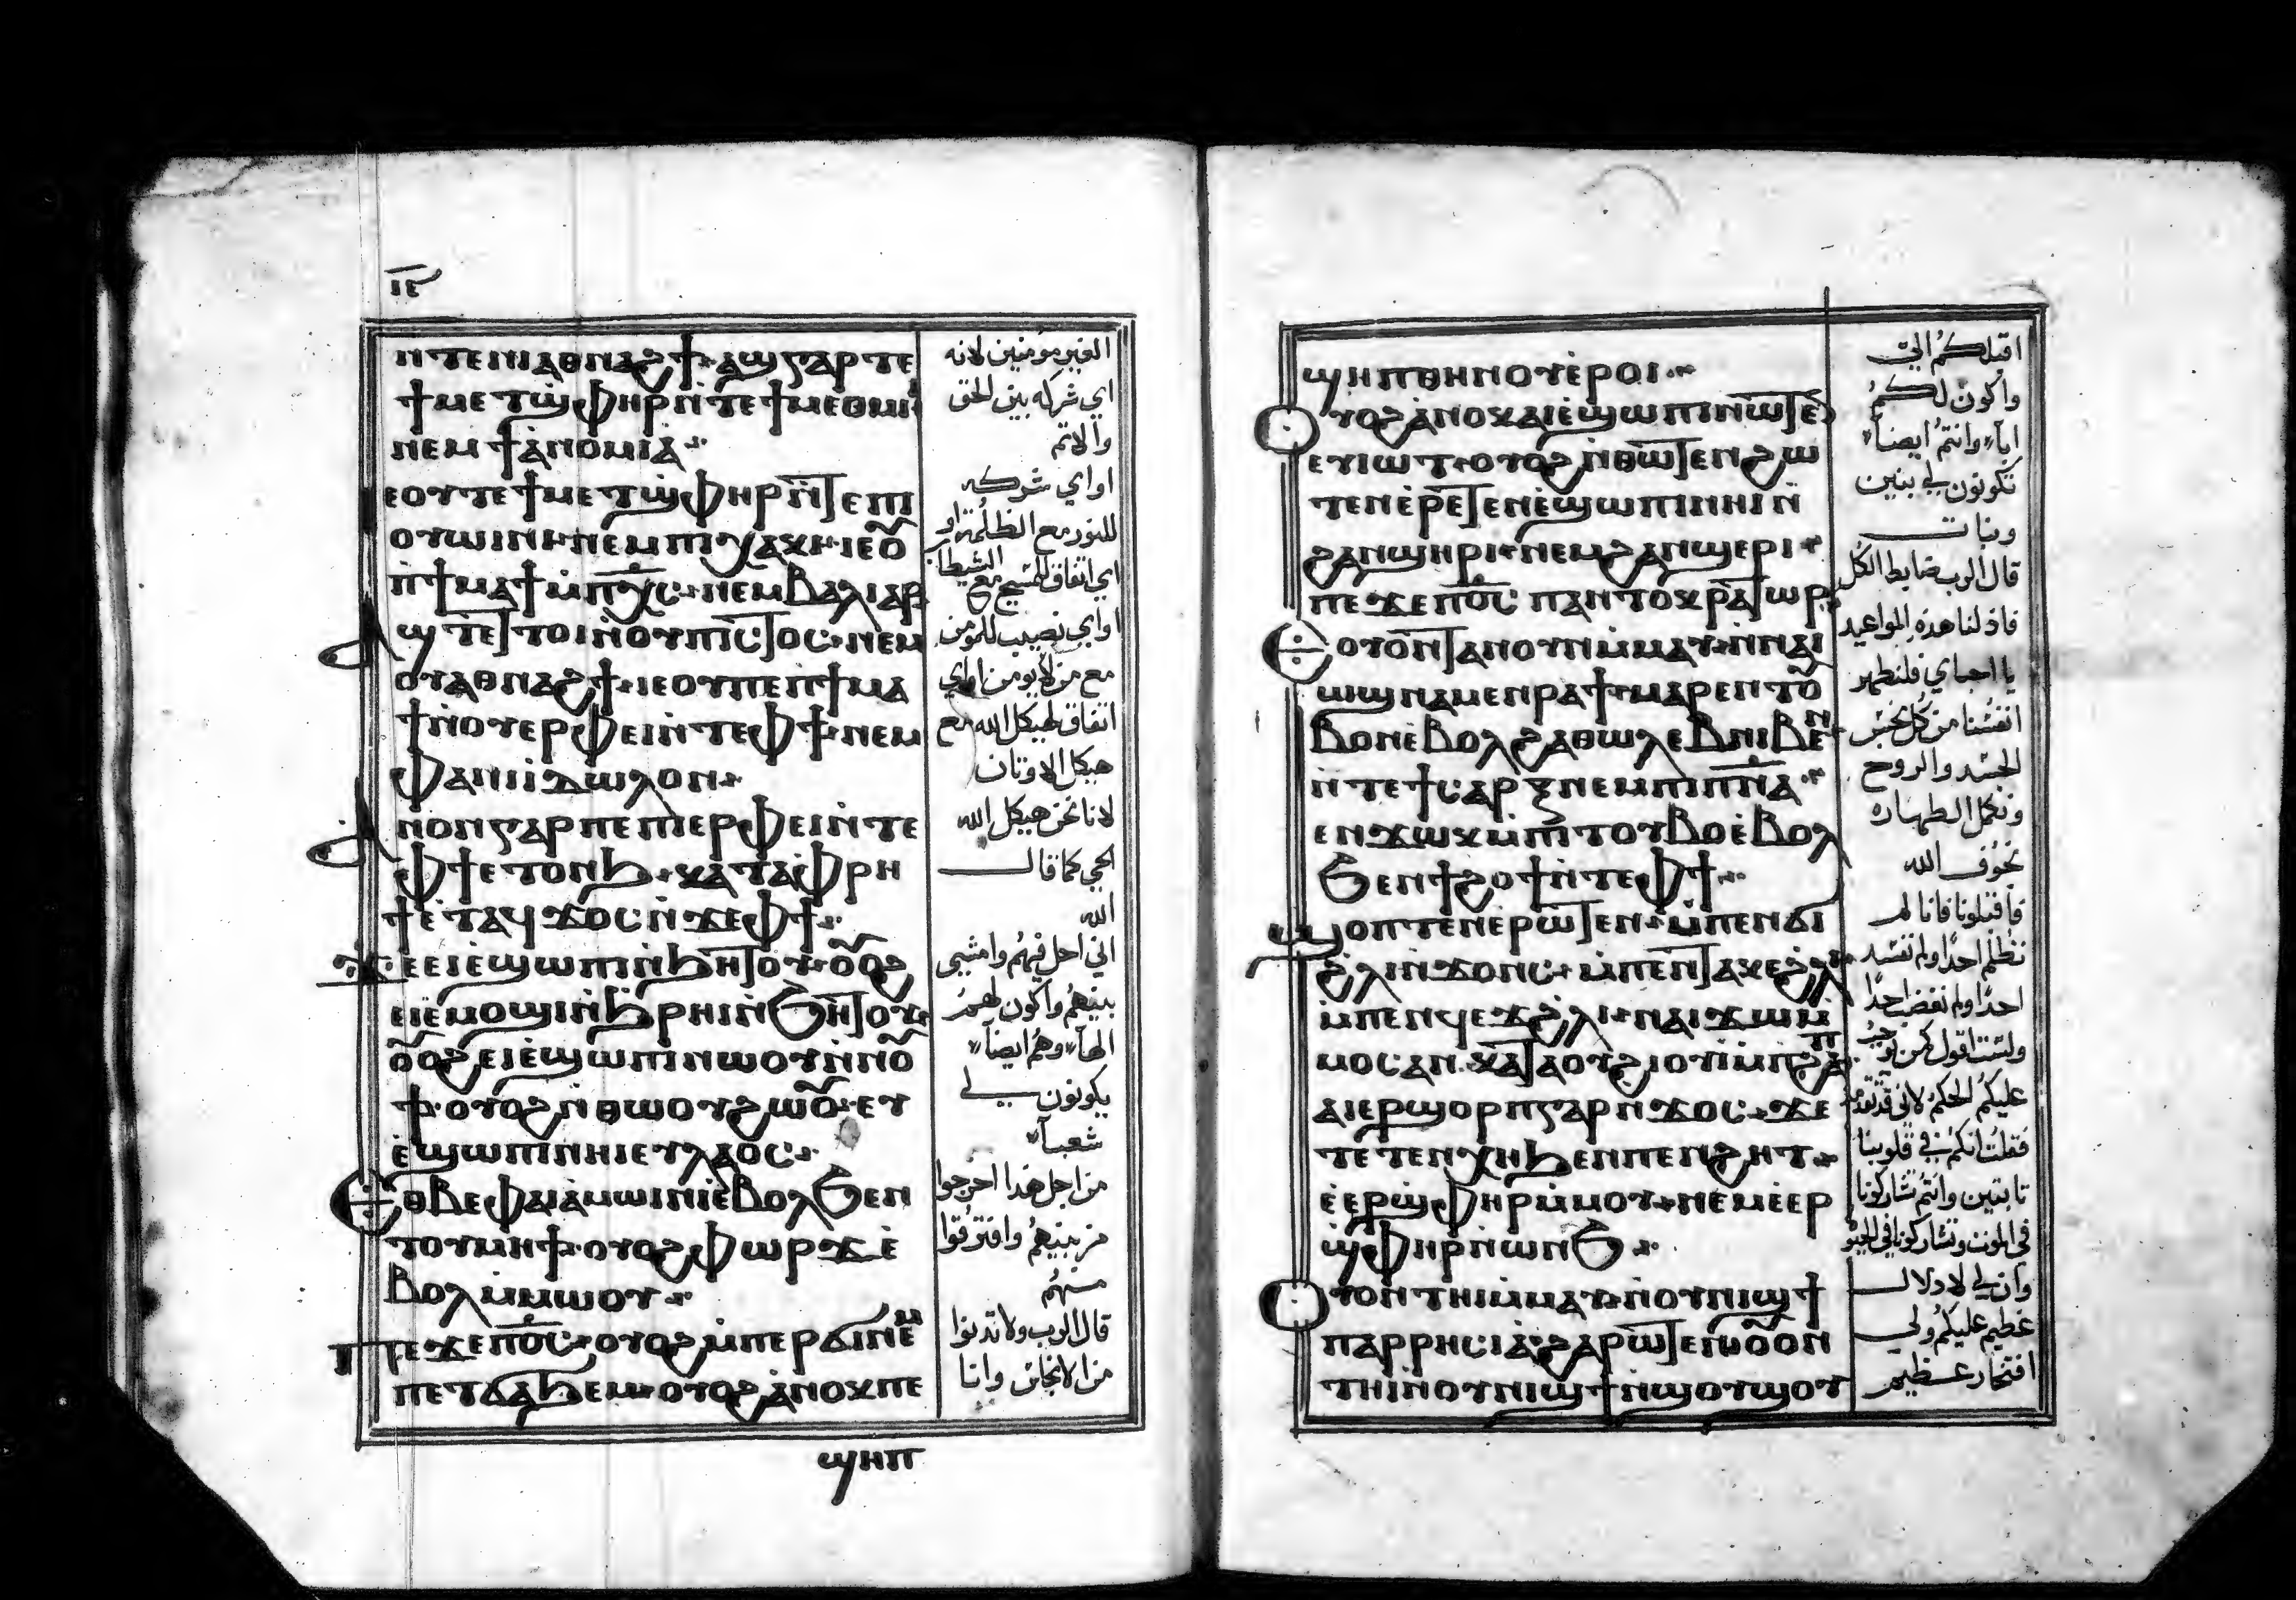 ⲓⲉ
ⲛⲧⲉⲛⲓⲁⲑⲛⲁϩϯ ⲁϣ ⲅⲁⲣ ⲧⲉ
ϯⲙⲉⲧϣⲫⲏⲣ ⲛ̀ⲧⲉ ϯⲙⲉⲑⲙⲏⲓ
ⲛⲉⲙ ϯⲁ̀ⲛⲟⲙⲓⲁ̀
ⲉⲟⲩ ⲧⲉ ϯⲙⲉⲧϣⲫⲏⲣ ⲛ̀ⲧⲉ ⲡⲓ
ⲟⲩⲱⲓⲛⲓ ⲛⲉⲙ ⲡⲓⲭⲁⲕⲓ ⲓⲉ ⲟⲩ
ⲛ̀ϯⲙⲁϯ ⲙ̀ⲡⲭ̅ⲥ̅ ⲛⲉⲙ ⲃⲉⲗⲓⲁⲣ
ⲁϣ ⲧⲉ ⲧⲟⲓ ⲛ̀ⲟⲩⲡⲓⲥⲧⲟⲥ ⲛⲉⲙ
ⲟⲩⲁⲑⲛⲁϩϯ ⲓⲉ ⲟⲩ ⲡⲉ ⲡϯⲙⲁ
ϯ ⲛ̀ⲟⲩⲉⲣⲫⲉⲓ ⲛ̀ⲧⲉ ⲫϯ ⲛⲉⲙ
ⲫⲁⲛⲓⲓⲇⲱⲗⲟⲛ
ⲁⲛⲟⲛ ⲅⲁⲣ ⲡⲉ ⲡⲓⲉⲣⲫⲉⲓ ⲛ̀ⲧⲉ
ⲫϯ ⲉⲧⲟⲛϧ ⲕⲁⲧⲁ ⲫⲣⲏ
ϯ ⲉ̀ⲧⲁϥϫⲟⲥ ⲛ̀ϫⲉ ⲫϯ
ϫⲉ ⲉⲓⲉ̀ϣⲱⲡⲓ ⲛ̀ϧⲏⲧⲟⲩ ⲟⲩⲟϩ
ⲉⲓⲉ̀ⲙⲟϣⲓ ⲛ̀ϧⲣⲏⲓ ⲛ̀ϧⲏⲧⲟⲩ
ⲟⲩⲟϩ ⲉⲓⲉ̀ϣⲱⲡⲓ ⲛⲱⲟⲩ ⲛ̀ⲛⲟⲩ
ϯ ⲟⲩⲟϩ ⲛ̀ⲑⲱⲟⲩ ϩⲱⲟⲩ ⲉⲩ
ⲉ̀ϣⲱⲡⲓ ⲛⲏⲓ ⲉⲩⲗⲁⲟⲥ
ⲉⲑⲃⲉ ⲫⲁⲓ ⲁ̀ⲙⲱⲓⲛⲓ ⲉ̀ⲃⲟⲗ ϧⲉⲛ
ⲧⲟⲩⲙⲏϯ ⲟⲩⲟϩ ⲫⲱⲣϫ ⲉ̀
ⲃⲟⲗ ⲙ̀ⲙⲱⲟⲩ
ⲡⲉϫⲉ ⲡⲟ̅ⲥ̅ ⲟⲩⲟϩ ⲙ̀ⲡⲉⲣϭⲓ ⲛⲉⲙ
ⲡⲉⲧϭⲁϧⲉⲙ ⲟⲩⲟϩ ⲁ̀ⲛⲟⲕ ⲡⲉ
ϣⲏⲡ
الغير مومنين لانه
اي شركه بين الحق
والاثم
او اي شركه
للنور مع الظلمة او
اي اتفاق للمسيح مع الشيطان
او اي نصيب للمومن
مع من لا يومن او اي
اتفاق لهيكل الله مع
هيكل الاوثان
لانا نحن هيكل الله
الحي كما قال
الله
اني احل فيهم وامشي
بينهم واكون لهم
الهاً وهم ايضاً
يكونون لي
شعباً
من اجل هذا اخرجوا
من بينهم وافترقوا
منهم
قال الرب ولا تدنوا
من الانجاس وانا
ϣⲏⲡ ⲑⲏⲛⲟⲩ ⲉ̀ⲣⲟⲓ
ⲟⲩⲟϩ ⲁ̀ⲛⲟⲕ ϩⲱ ⲉⲓⲉ̀ϣⲱⲡⲓ ⲛⲱⲧⲉⲛ
ⲉⲩⲓⲱⲧ ⲟⲩⲟϩ ⲛ̀ⲑⲱⲧⲉⲛ ϩⲱ
ⲧⲉⲛ ⲉ̀ⲣⲉⲧⲉⲛⲉ̀ϣⲱⲡⲓ ⲛⲏⲓ ⲛ̀
ϩⲁⲛϣⲏⲣⲓ ⲛⲉⲙ ϩⲁⲛϣⲉⲣⲓ
ⲡⲉϫⲉ ⲡⲟ̅ⲥ̅ ⲡⲁⲛⲧⲟⲕⲣⲁⲧⲱⲣ
ⲉⲟⲩⲟⲛⲧⲁⲛ ⲟⲩⲛ ⲙ̀ⲙⲁⲩ ⲛ̀ⲛⲁⲓ
ⲱϣ ⲛⲁⲙⲉⲛⲣⲁϯ ⲙⲁⲣⲉⲛⲧⲟⲩ
ⲃⲟⲛ ⲉ̀ⲃⲟⲗϩⲁ ⲑⲱⲗⲉⲃ ⲛⲓⲃⲉⲛ
ⲛ̀ⲧⲉ ϯⲥⲁⲣⲝ ⲛⲉⲙ ⲡⲓⲡ̅ⲛ̅ⲁ̅
ⲉⲛϫⲱⲕ ⲙ̀ⲡⲓⲧⲟⲩⲃⲟ ⲉ̀ⲃⲟⲗ
ϧⲉⲛ ϯϩⲟϯ ⲛ̀ⲧⲉ ⲫϯ
ϣⲟⲡⲧⲉⲛ ⲉ̀ⲣⲱⲧⲉⲛ ⲙ̀ⲡⲉⲛϭⲓ
ϩ̀ⲗⲓ ⲛ̀ϫⲟⲛⲥ ⲙ̀ⲡⲉⲛⲧⲁⲕⲉ ϩ̀ⲗⲓ
ⲙ̀ⲡⲉⲛϥⲉϫ ϩ̀ⲗⲓ ⲛⲁⲓϫⲱ ⲙ̀
ⲙⲟⲥ ⲁⲛ ⲕⲁⲧⲁ ⲟⲩϩⲓⲟⲩⲓ ⲙ̀ⲡϩⲁⲡ
ⲁⲓⲉⲣϣⲟⲣⲡ ⲅⲁⲣ ⲛ̀ϫⲟⲥ ϫⲉ
ⲧⲉⲧⲉⲛⲭⲏ ϧⲉⲛ ⲡⲉⲛϩⲏⲧ
ⲉ̀ⲉⲣϣⲫⲏⲣ ⲙ̀ⲙⲟⲩ ⲛⲉⲙ ⲉ̀ⲉⲣ
ϣⲫⲏⲣ ⲛ̀ⲱⲛϧ
ⲟⲩⲟⲛⲧⲏⲓ ⲙ̀ⲙⲁⲩ ⲛ̀ⲟⲩⲛⲓϣϯ
ⲡⲁⲣⲣⲏⲥⲓⲁ̀ ϩⲁⲣⲱⲧⲉⲛ ⲟⲩⲟⲛ
ⲧⲏⲓ ⲛ̀ⲟⲩⲛⲓϣϯ ⲛ̀ϣⲟⲩϣⲟⲩ
اقبلكم الي
واكون لكم
اباً وانتم ايضاً
تكونون لي بنين
وبنات
قال الرب ضابط الكل
فاذ لنا هذه المواعيد
يا احباي فلنطهر
انفسنا من كل نجس
الجسد والروح
ونكمل الطهارة
بخوف الله
فاقبلونا فانا لم
نظلم احدًا ولم نفسد
احدًا ولم نغضب احدًا
ولست اقول كمن يوجب
عليكم الحكم لاني قد تقدمت
فقلت انكم في قلوبنا
ثابتين وانتم تشاركونا
في الموت وتشاركونا في الحيوة
وان لي لادلال
عظيم عليكم ولي
افتخار عظيم